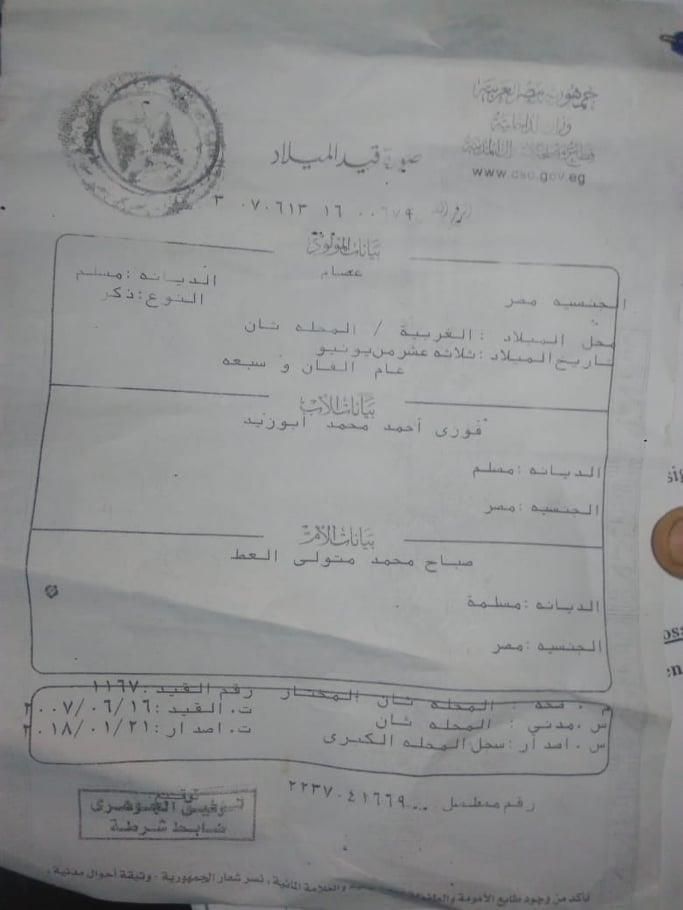 جمهورية مصر العربية
وزارة الداخلية
قطاع مصلحة الأحوال المدنية
www.cso.gov.eg
صورة قيد الميلاد
الرقم القومى ٣ ٠٧٠٦١٣ ١٦ ٠٠٦٧٩
بيانات المولود
عصام
الديانه :مسلم
الجنسيه مصر
النوع :ذكر
محل الميلاد : الغربية / المحله ثان
تاريخ الميلاد :ثلاثه عشر من يونيو
عام الفان و سبعه
بيانات الأب
فوزى أحمد محمد أبوزيد
الديانه :مسلم
الجنسيه :مصر
بيانات الأم
صباح محمد متولى العط
الديانه :مسلمة
الجنسيه :مصر
م . صحه : المحله ثان المختار رقم القيد :١١٦٧
س .مدني : المحله ثان ت. القيد :٢٠٠٧/٠٦/١٦
س . اصدار :سجل المحله الكبرى ت. اصدار :٢٠١٨/٠١/٢١
رقم مسلسل ٢٢٣٧٠٤١٦٦٩
توقيع
توفيق الجوهرى
ضابط شرطة
تأكد من وجود طابع الأمومة والطفولة والعلامة المائية ، نسر شعار الجمهورية - وثيقة أحوال مدنية ،